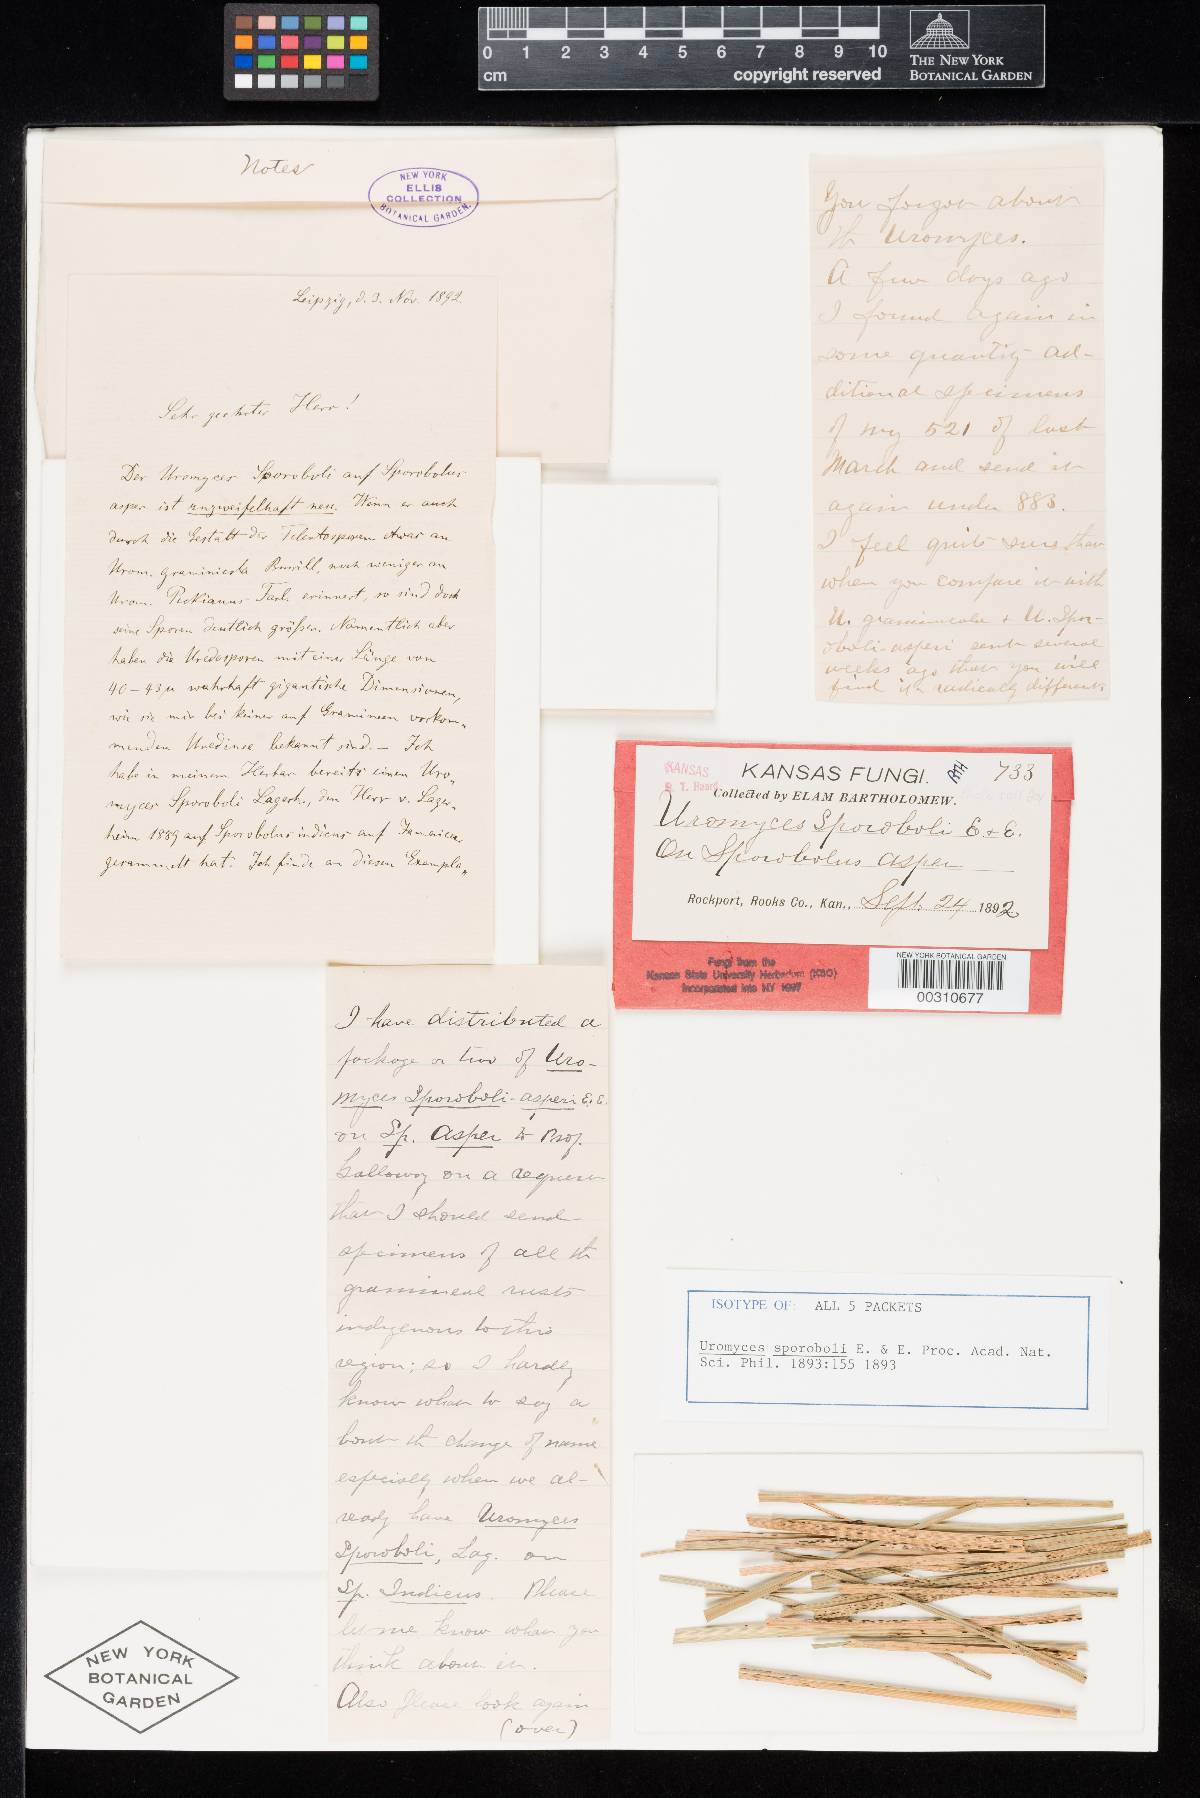 0 1 2 3 4 5 6 7 8 9 10
cm
copyright reserved
THE NEW YORK
BOTANICAL GARDEN
Notes
NEW YORK
ELLIS
COLLECTION
BOTANICAL GARDEN.
Leipzig, d. 3. Nov. 1892.
Sehr geehrter Herr!
Der Uromyces Sporoboli auf Sporobolus
asper ist unzweifelhaft neu. Wenn er auch
durch die Gestalt der Teleutosporen etwas an
Urom. graminicola Burrill, noch weniger an
Urom. Peckianus Farl. erinnert, so sind doch
seine Sporen deutlich größer. Namentlich aber
haben die Uredosporen mit einer Länge von
40–43µ wahrhaft gigantische Dimensionen,
wie sie mir bei keiner auf Gramineen vorkom-
menden Uredinee bekannt sind. — Ich
habe in meinem Herbar bereits einen Uro-
myces Sporoboli Lagerh., den Herr v. Lager-
heim 1889 auf Sporobolus indicus auf Jamaica
gesammelt hat. Ich finde an diesen Exempla-
You forgot about
th Uromyces.
A few days ago
I found again in
some quantity ad-
ditional specimens
of my 521 of last
March and send it
again under 883.
I feel quite sure that
when you compare it with
U. graminicola + U. Spor-
oboli-asperi sent several
weeks ago that you will
find it radically different.
KANSAS
KANSAS FUNGI.
733
Collected by ELAM BARTHOLOMEW.
Uromyces Sporoboli E. & E.
On Sporobolus asper
Rockport, Rooks Co., Kan., Sept. 24 1892
Fungi from the
Kansas State University Herbarium (KSC)
Incorporated into NY 1997
NEW YORK BOTANICAL GARDEN
00310677
I have distributed a
package or two of Uro-
myces Sporoboli-asperi E. & E.
on Sp. Asper to Prof.
Galloway on a request
that I should send
specimens of all th
gramineal rusts
indigenous to this
region; so I hardly
know what to say a
bout th change of name
especially when we al-
ready have Uromyces
Sporoboli, Lag. on
Sp. Indicus. Please
let me know what you
think about it.
Also please look again
(over)
ISOTYPE OF: ALL 5 PACKETS
Uromyces sporoboli E. & E. Proc. Acad. Nat.
Sci. Phil. 1893:155 1893
NEW YORK
BOTANICAL
GARDEN